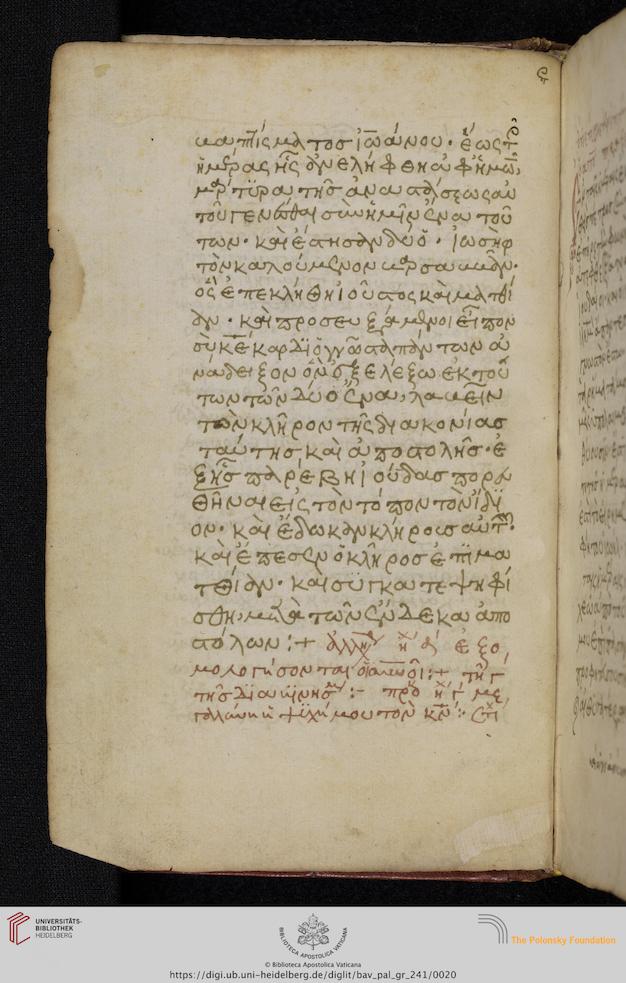 βαπτίσματος ἰωάννου· ἕως τ
ἡμέρας ἧς ἀνελήφθη ἀφ ἡμῶ
μάρτυρα τῆς ἀναστάσεως αὐ
τοῦ γενέσθαι σὺν ἡμῖν ἕνα τού
των· καὶ ἔστησαν δύο· ἰωσὴφ
τὸν καλούμενον βαρσαββᾶν·
ὃς ἐπεκλήθη ἰοῦστος καὶ ματθί
αν· καὶ προσευξάμενοι εἶπον
σὺ κε καρδιογνῶστα πάντων ἀ
νάδειξον ὃν ἐξελέξω ἐκ τού
των τῶν δύο ἕνα, λαβεῖν
τὸν κλῆρον τῆς διακονίας
ταύτης καὶ ἀποστολῆς· ἐ
ξ ἧς παρέβη ἰούδας πορευ
θῆναι εἰς τὸν τόπον τὸν ἴδι
ον· καὶ ἔδωκαν κλήρους αὐτ
καὶ ἔπεσεν ὁ κλῆρος ἐπὶ μα
τθίαν· καὶ συγκατεψηφί
σθη μετὰ τῶν ἕνδεκα ἀπο
στόλων :+ ἀλλη ἐξο
μολογήσονται οἱ οὐνοὶ :+ τῇ γ
τῆς διακινησ :- προ
γαλύνει ἡ ψυχή μου τὸν κν :·
UNIVERSITÄTS-
BIBLIOTHEK
HEIDELBERG
BIBLIOTECA APOSTOLICA VATICANA
The Polonsky Foundation
© Biblioteca Apostolica Vaticana
https://digi.ub.uni-heidelberg.de/diglit/bav_pal_gr_241/0020